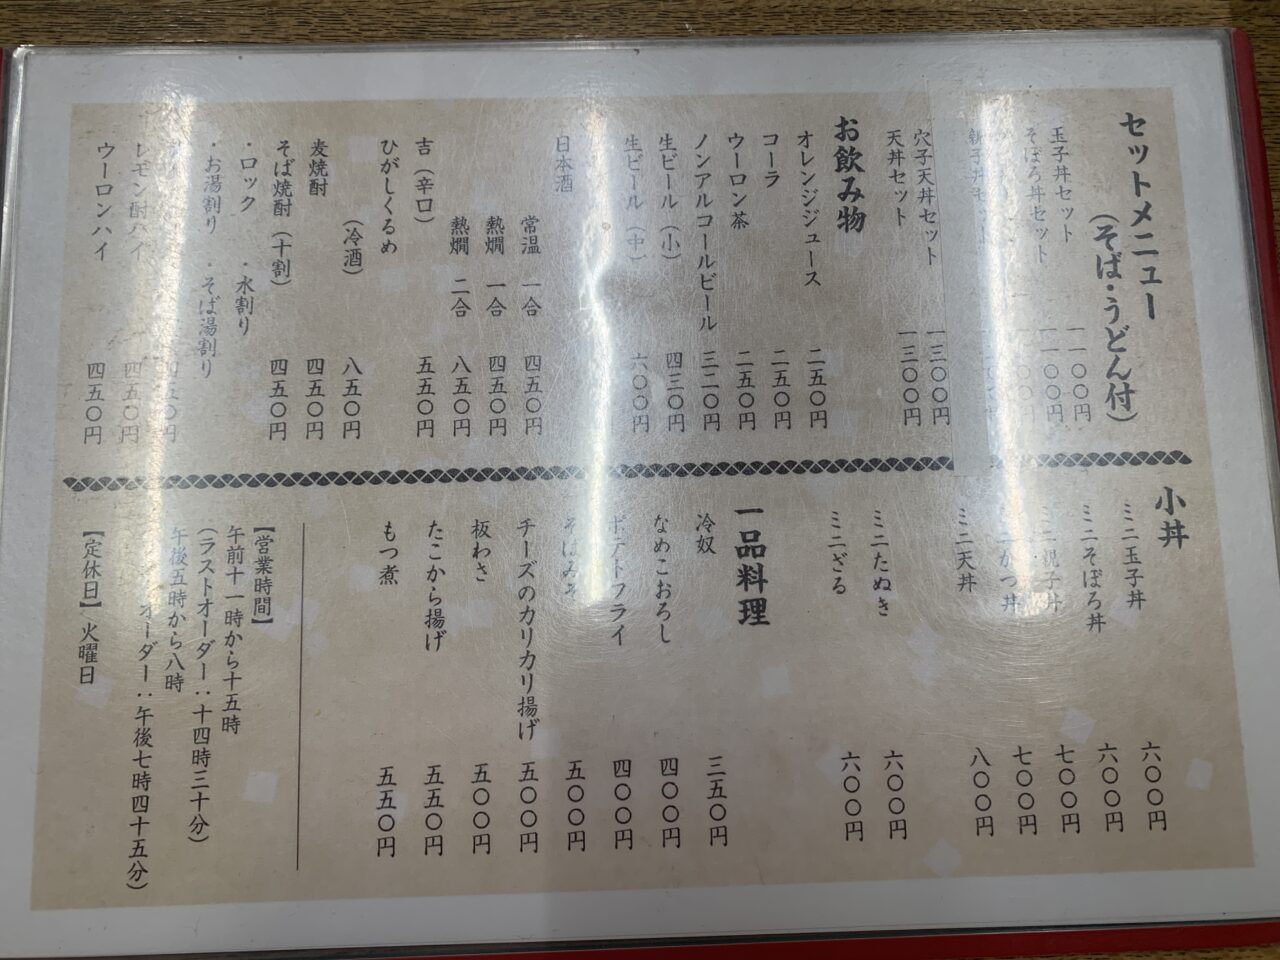 セットメニュー
(そば・うどん付)
玉子丼セット 一一〇〇円
そぼろ丼セット 一一〇〇円
親子丼セット
穴子天丼セット 一三〇〇円
天丼セット 一三〇〇円
お飲み物
オレンジジュース 二五〇円
コーラ 二五〇円
ウーロン茶 二五〇円
ノンアルコールビール 三二〇円
生ビール(小) 四三〇円
生ビール(中) 六〇〇円
日本酒
常温 一合 四五〇円
熱燗 一合 四五〇円
熱燗 二合 八五〇円
吉(辛口) 五五〇円
ひがしくるめ
(冷酒) 八五〇円
麦焼酎 四五〇円
そば焼酎(十割) 四五〇円
・ロック ・水割り
・お湯割り ・そば湯割り
四五〇円
レモン酎ハイ 四五〇円
ウーロンハイ 四五〇円
小丼
ミニ玉子丼 六〇〇円
ミニそぼろ丼 六〇〇円
ミニ親子丼 七〇〇円
ミニかつ丼 七〇〇円
ミニ天丼 八〇〇円
ミニたぬき 六〇〇円
ミニざる 六〇〇円
一品料理
冷奴 三五〇円
なめこおろし 四〇〇円
ポテトフライ 四〇〇円
そばみそ 五〇〇円
チーズのカリカリ揚げ 五〇〇円
板わさ 五〇〇円
たこから揚げ 五五〇円
もつ煮 五五〇円
【営業時間】
午前十一時から十五時
(ラストオーダー：十四時三十分)
午後五時から八時
オーダー：午後七時四十五分)
【定休日】火曜日